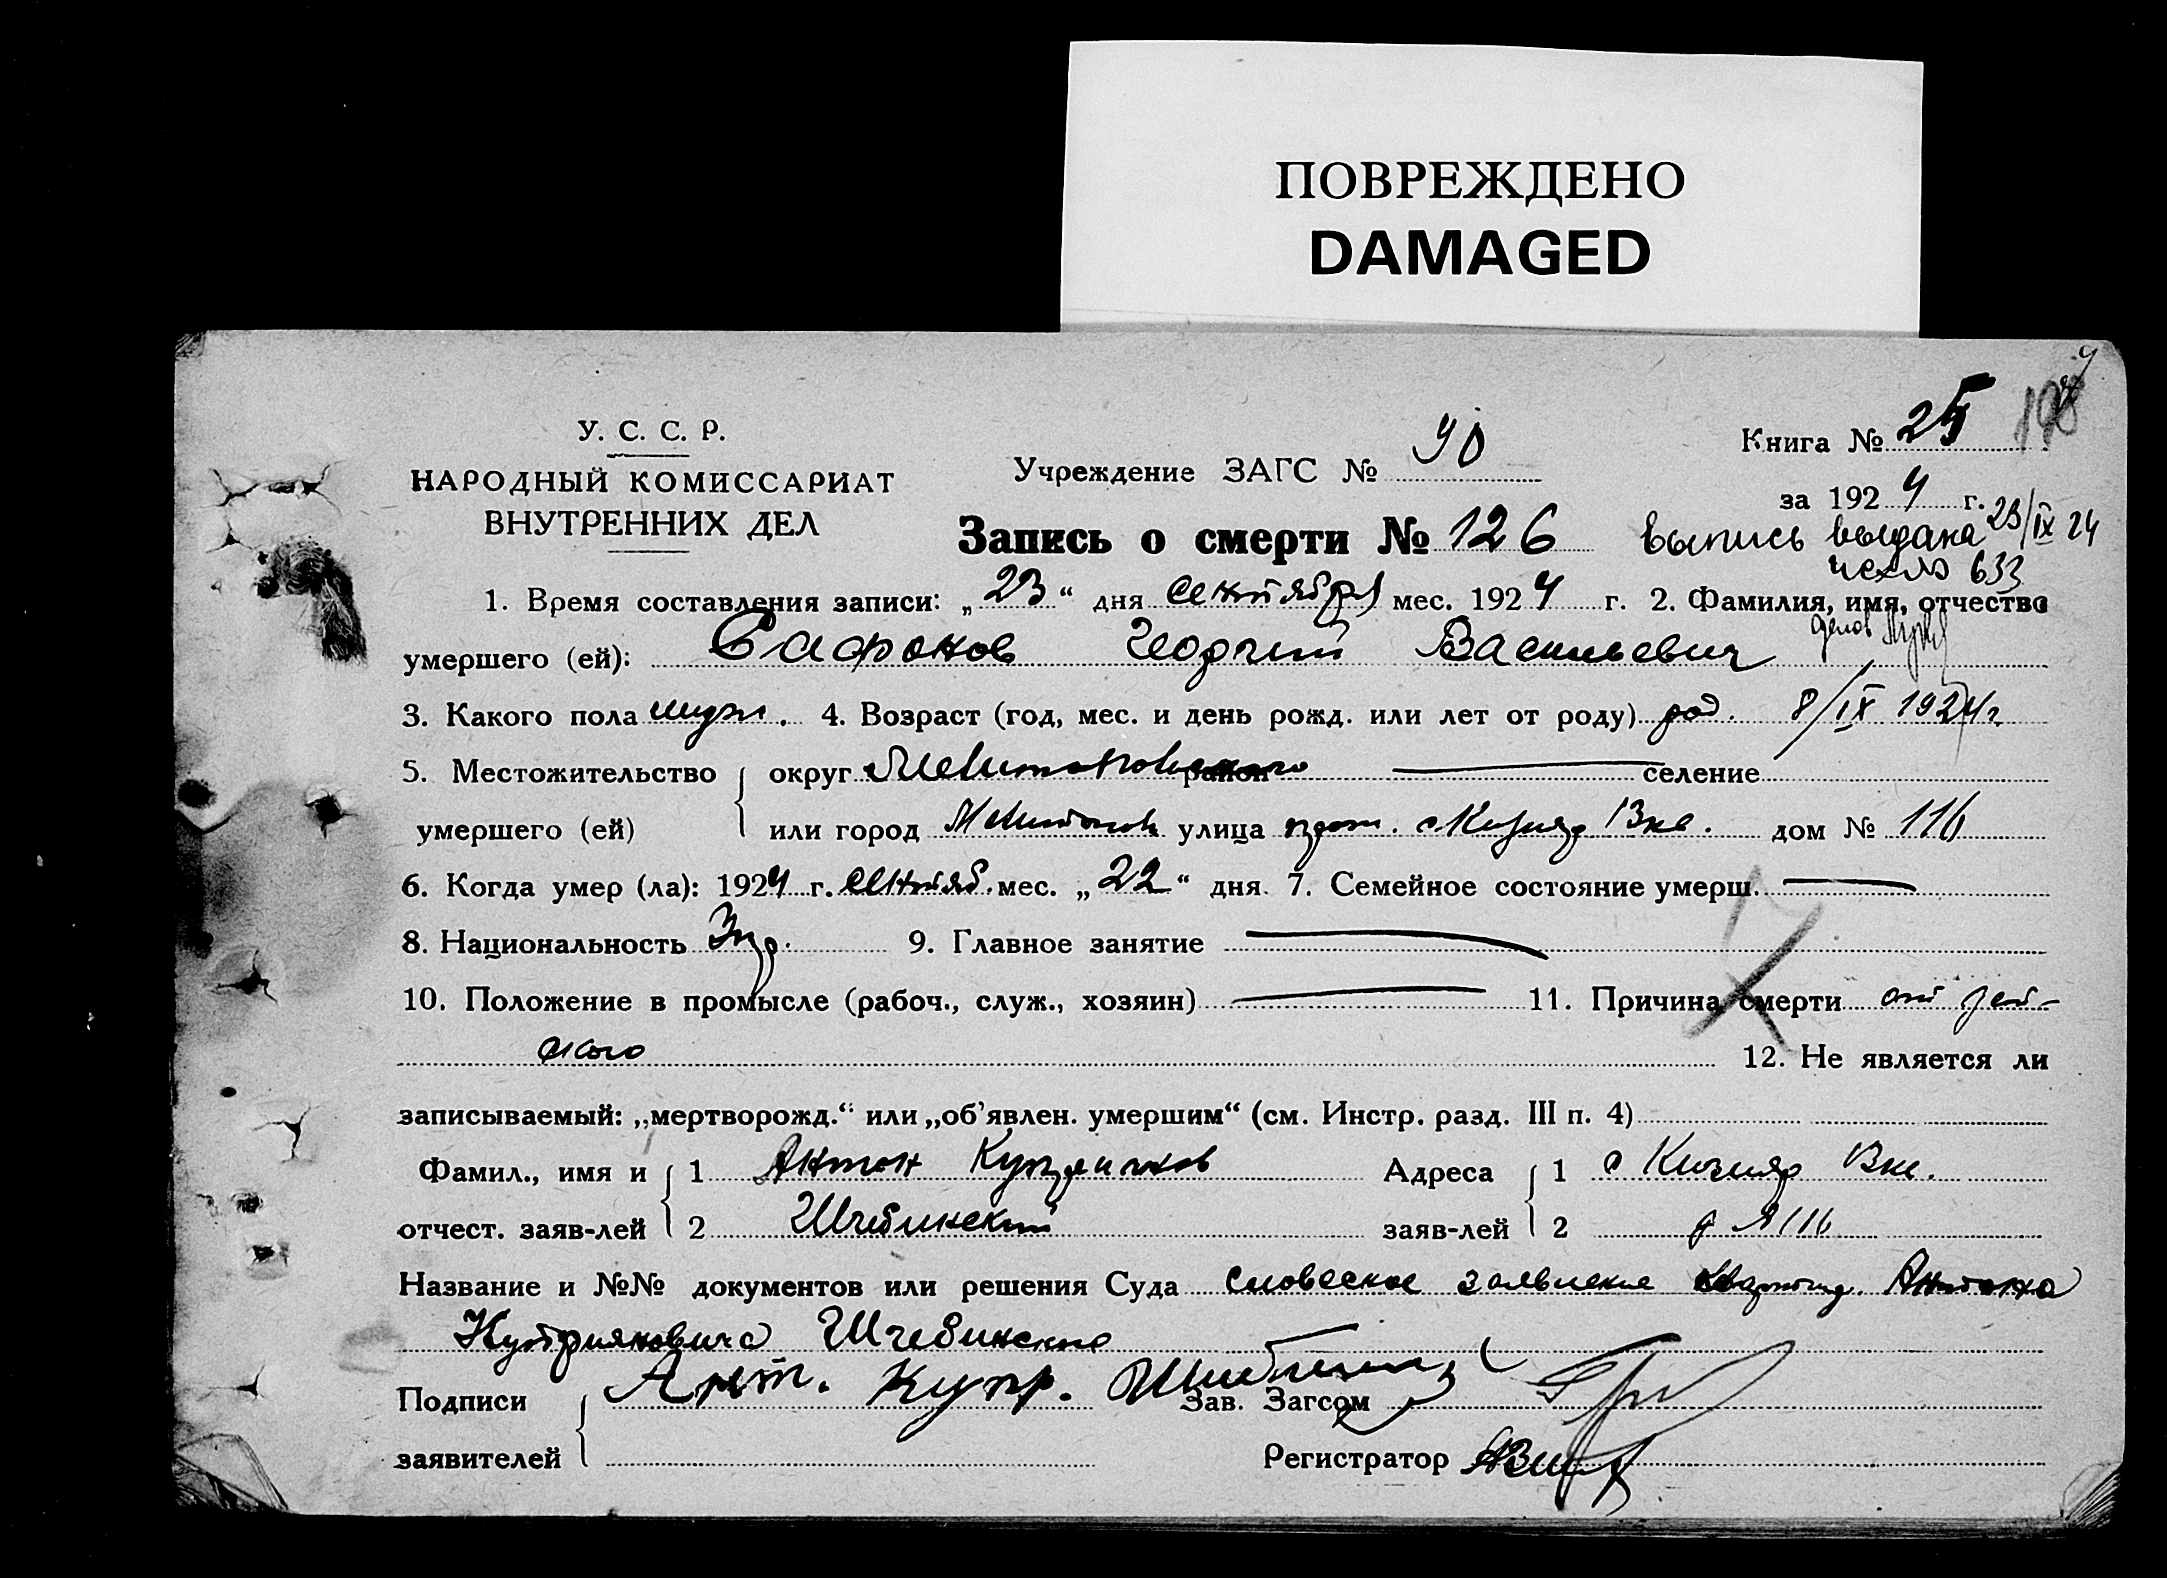 ПОВРЕЖДЕНО
DAMAGED
У. С. С. Р.
НАРОДНЫЙ КОМИССАРИАТ
ВНУТРЕННИХ ДЕЛ
Учреждение ЗАГС №
Книга № 25
за 1924 г.
Запись о смерти № 126
выпись выдана 23/IX 24
633
1. Время составления записи: „23“ дня сентября мес. 1924 г. 2. Фамилия, имя, отчество
умершего (ей): Сафонов Георгий Васильевич
3. Какого пола муж. 4. Возраст (год, мес. и день рожд. или лет от роду) род. 8/IX 1924 г
5. Местожительство округ Мелитопольского район селение
умершего (ей) или город Мелитополь улица с Кизияр Вкл. дом № 116
6. Когда умер (ла): 1924 г. сентяб. мес. „22“ дня 7. Семейное состояние умерш.
8. Национальность 9. Главное занятие
10. Положение в промысле (рабоч., служ., хозяин) 11. Причина смерти от
12. Не является ли
записываемый: „мертворожд.“ или „об’явлен. умершим“ (см. Инстр. разд. III п. 4)
Фамил., имя и 1 Антон Адреса 1 с Кизияр Вкл.
отчест. заяв-лей 2 Шчебинский заяв-лей 2 д № 116
Название и №№ документов или решения Суда словесное заявление Антона
Куприяновича Шчебинского
Подписи Ант. Купр. Зав. Загсом
заявителей Регистратор